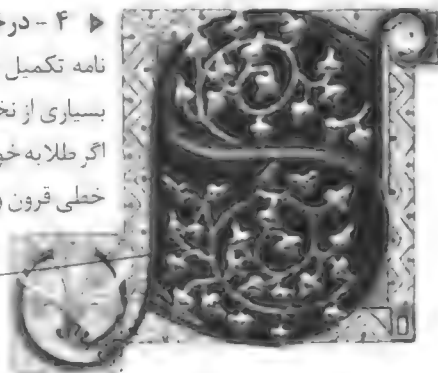 ◀ ۴ - در
نامه تکمیل
بسیاری از
اگر طلا به
خطی قرون